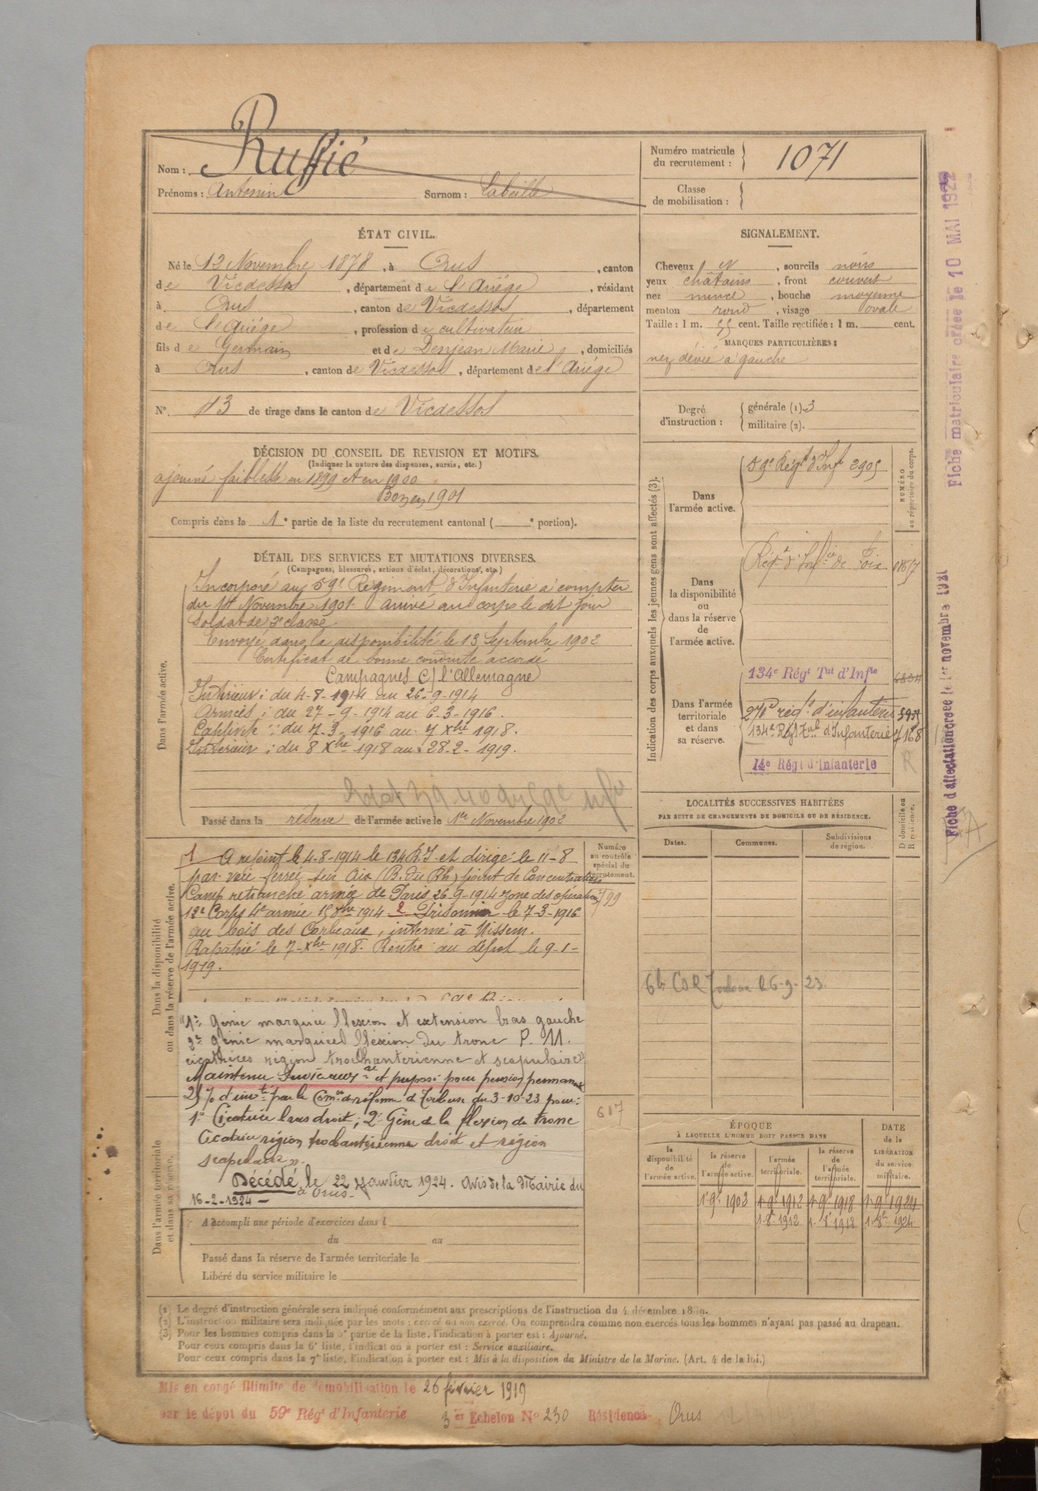 Nom : Ruffié
Prénoms : Antonin Surnom : Labeille
Numéro matricule du recrutement : 1071
Classe de mobilisation :
ÉTAT CIVIL.
Né le 12 Novembre 1878, à Orus, canton
de Vicdessos, département de l'Ariége, résidant
à Orus, canton de Vicdessos, département
de l'Ariége, profession de cultivateur
fils de Germain et de Denjean Marie, domiciliés
à Orus, canton de Vicdessos, département de l'Ariége
N° 43 de tirage dans le canton de Vicdessos
SIGNALEMENT.
Cheveux et N, sourcils noirs
yeux châtains, front couvert
nez mince, bouche moyenne
menton rond, visage ovale
Taille : 1 m. 55 cent. Taille rectifiée : 1 m. cent.
MARQUES PARTICULIÈRES :
nez dévié à gauche
Degré d'instruction : générale (1). 3
militaire (2).
DÉCISION DU CONSEIL DE REVISION ET MOTIFS.
(Indiquer la nature des dispenses, sursis, etc.)
ajourné faiblesse en 1899 et en 1900
Bon en 1901
Compris dans la 1e partie de la liste du recrutement cantonal ( e portion).
DÉTAIL DES SERVICES ET MUTATIONS DIVERSES.
(Campagnes, blessures, actions d'éclat, décorations, etc.)
Dans l'armée active.
Incorporé au 59e Régiment d'Infanterie à compter
du 14 Novembre 1901 arrivé au corps le dit jour
soldat de 2e classe
Envoyé dans la disponibilité le 13 Septembre 1902
Certificat de bonne conduite accordé
Campagnes c/ l'Allemagne
Intérieur : du 4-8-1914 au 26-9-1914
Armées : du 27-9-1914 au 6-3-1916.
Captivité : du 7-3-1916 au 7 Xbre 1918.
Intérieur : du 8 Xbre 1918 au 28-2-1919.
Passé dans la réserve de l'armée active le 1er Novembre 1902
Indication des corps auxquels les jeunes gens sont affectés (3).
NUMÉRO au répertoire du corps.
Dans l'armée active.
59e Régt d'Inf 2905
Dans la disponibilité ou dans la réserve de l'armée active.
Régt d'Infie de Foix 1857
Dans l'armée territoriale et dans sa réserve.
134e Régt Tal d'Infie
270e régt d'infanterie
134e Régt Tal d'Infanterie 7168
14e Régt d'Infanterie
R
Dans la disponibilité ou dans la réserve de l'armée active.
Numéro au contrôle spécial du recrutement.
1 A rejoint le 4-8-1914 le 134 R.I. et dirigé le 11-8
par voie ferrée sur Aix (B. du Rh.) point de Concentration
Camp retranché armée de Paris 26-9-1914 zone des opérations
12e Corps 4e armée 1914 2 Prisonnier le 7-3-1916
au bois des Corbeaux, interné à Wissem.
Rapatrié le 7-Xbre 1918. Rentré au dépôt le 9-1-
1919.
1° Gêne marquée flexion et extension bras gauche
2° gêne marquée flexion du tronc P. M.
cicatrices région trochantérienne et scapulaire
Maintenu et proposé pour pension permanente
25 % d'invté par la Comon de réforme de Toulouse du 3-10-23 pour :
1° Cicatrice bras droit ; 2° Gêne de la flexion du tronc
Cicatrice région trochantérienne droit et région
scapulaire.
Décédé le 22 Janvier 1924. Avis de la Mairie du
à Orus
16-2-1924 -
617
Dans l'armée territoriale et dans sa réserve.
A accompli une période d'exercices dans l
du au
Passé dans la réserve de l'armée territoriale le
Libéré du service militaire le
LOCALITÉS SUCCESSIVES HABITÉES
PAR SUITE DE CHANGEMENTS DE DOMICILE OU DE RÉSIDENCE.
Dates. Communes. Subdivisions de région. D domicile ou R résidence.
6e CSR Toulouse 26-9-23.
ÉPOQUE
À LAQUELLE L'HOMME DOIT PASSER DANS
la disponibilité de l'armée active. la réserve de l'armée active. l'armée territoriale. la réserve de l'armée territoriale.
DATE de la LIBÉRATION du service militaire.
1-9-1903 1-9-1912 1-9-1918 1-9-1924
1-8-1912 1-8-1918 1-8-1924
(1) Le degré d'instruction générale sera indiqué conformément aux prescriptions de l'instruction du 4 décembre 1889.
(2) L'instruction militaire sera indiquée par les mots : exercé ou non exercé. On comprendra comme non exercés tous les hommes n'ayant pas passé au drapeau.
(3) Pour les hommes compris dans la 5e partie de la liste, l'indication à porter est : Ajourné.
Pour ceux compris dans la 6e liste, l'indication à porter est : Service auxiliaire.
Pour ceux compris dans la 7e liste, l'indication à porter est : Mis à la disposition du Ministre de la Marine. (Art. 4 de la loi.)
Mis en congé illimité de démobilisation le 26 février 1919
par le dépôt du 59e Régt d'Infanterie 3 er Echelon N° 230 Résidence Orus
Fiche matriculaire créée le 10 MAI 1922
Fiche d'affectation créée le 1er novembre 1921